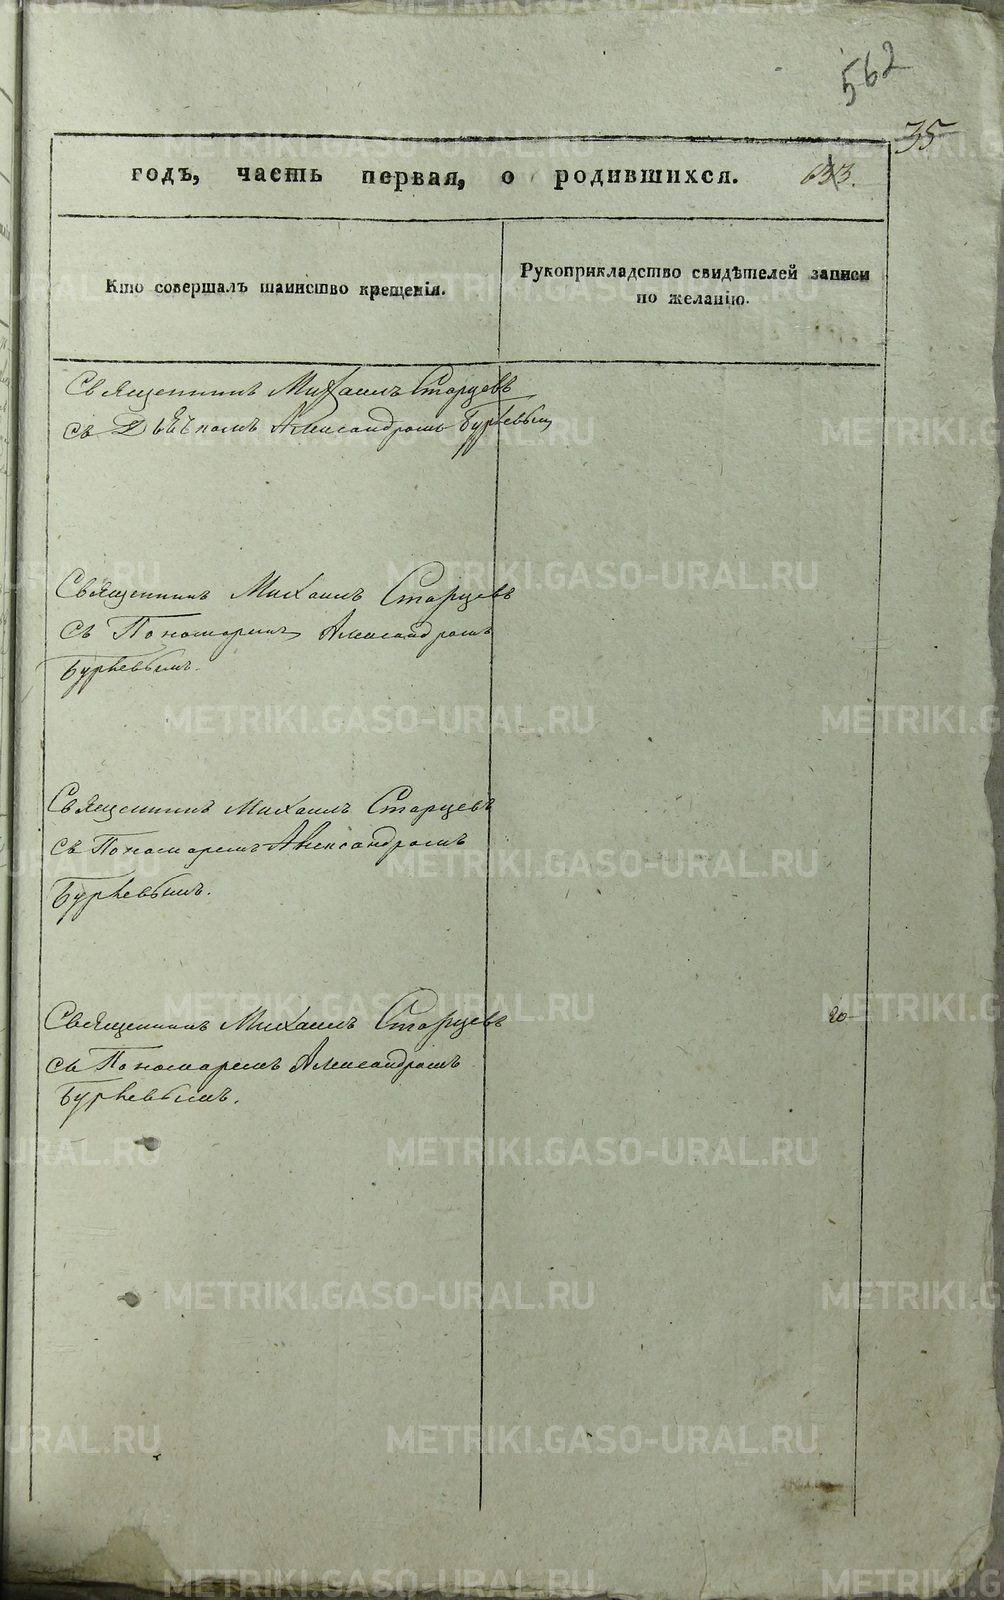 562
35
годъ, часть первая, о родившихся. 633.
Кто совершалъ таинство крещенія.
Рукоприкладство свидѣтелей записи
по желанію.
Священникъ Михаилъ Старцевъ
съ Дьячкомъ Александромъ
Священникъ Михаилъ Старцевъ
съ Пономаремъ Александромъ
Священникъ Михаилъ Старцевъ
съ Пономаремъ Александромъ
Священникъ Михаилъ Старцевъ
съ Пономаремъ Александромъ
METRIKI.GASO-URAL.RU